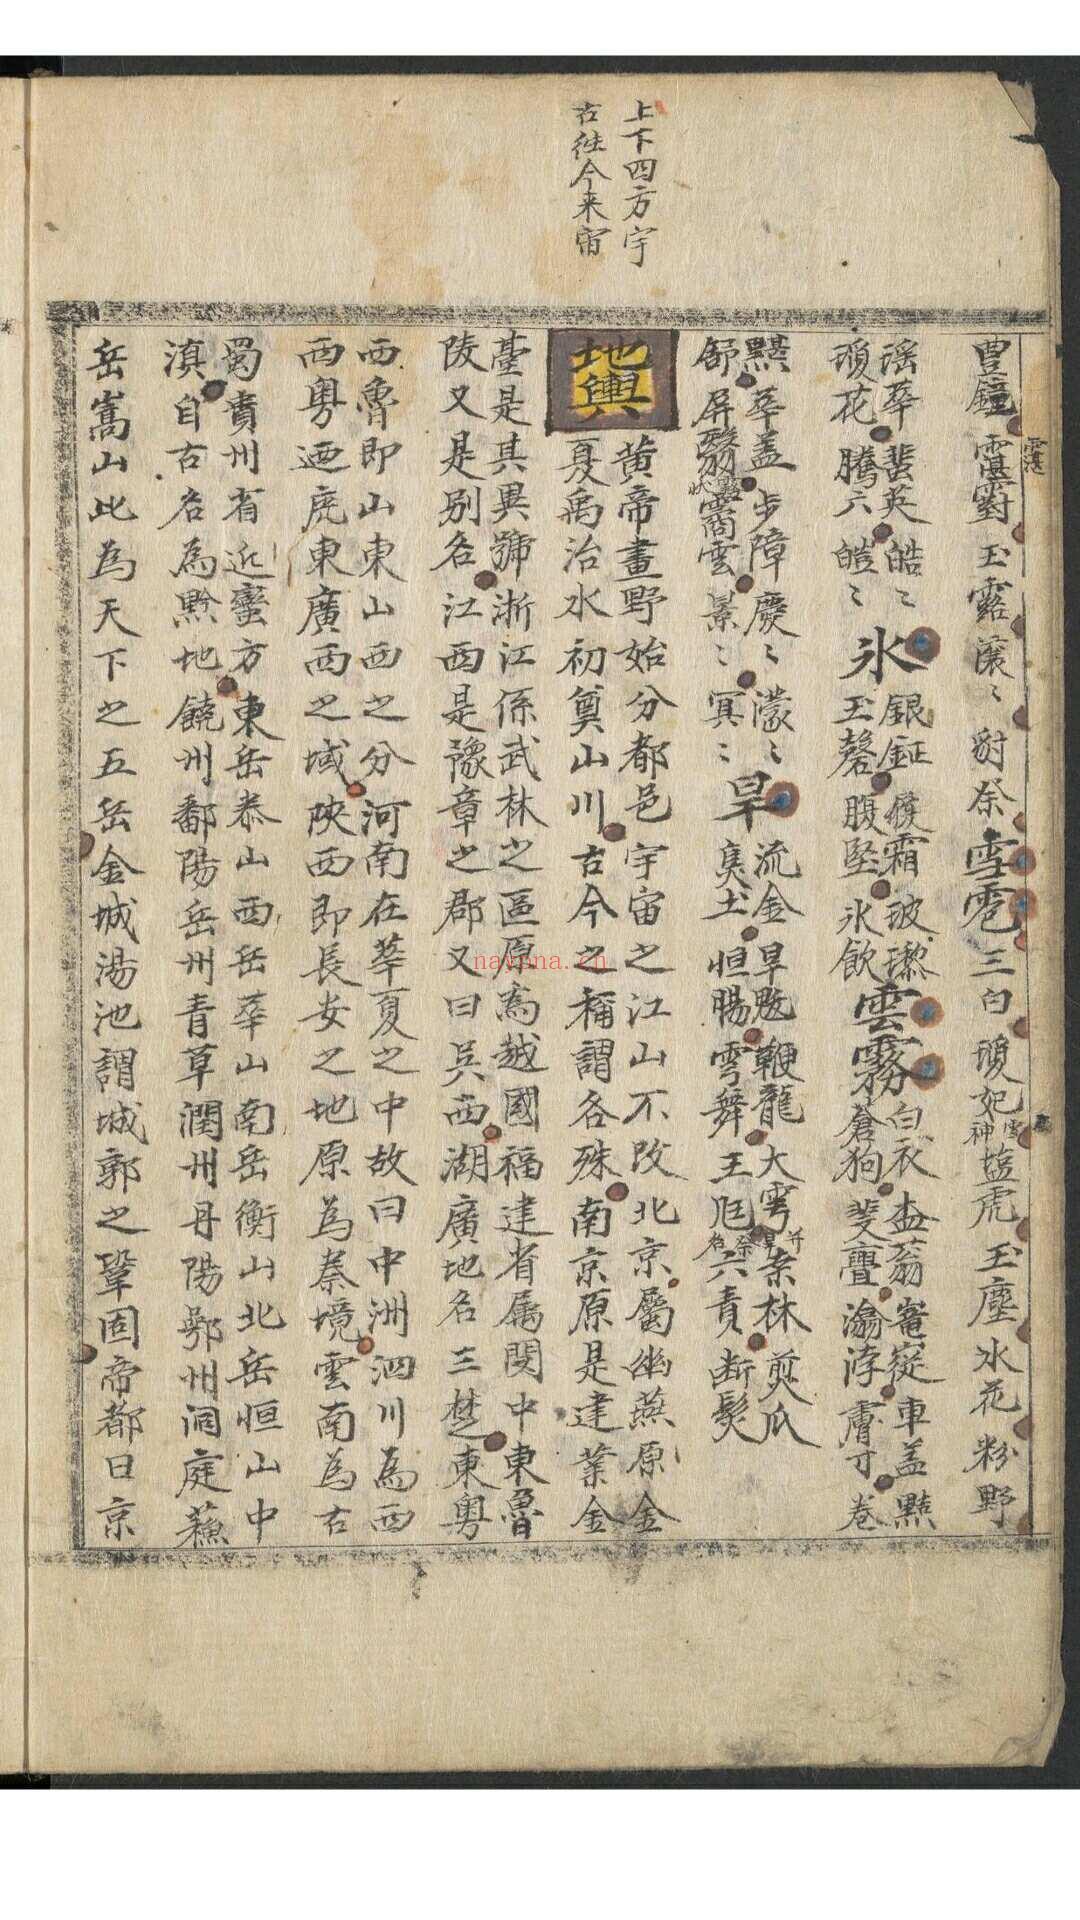 上下四方宇
古往今来宙
豊鐘 玉露瀼〻 豺祭 雪雹 三白 瓊妃 神 塩虎 玉塵 水花 粉野
瑶華 蜚英 皓〻
瓊花 騰六 皚〻
氷
銀鉦 履霜 玻瓈
玉磬 腹堅 氷飲
雲霧
白衣 盎蓊 菴蓯 車盖 黯
蒼狗 斐亹 瀹浡 膚寸 卷
黮 華盖 步障 慶〻 濛〻
舒 屏翳 矞雲 景〻 冥〻
旱
流金 旱魃 鞭龍 大雩 桒林 煎爪
奥土 恒暘 雩舞 王尪 六責 断髮
地輿
黄帝畫野始分都邑宇宙之江山不改北京屬幽燕原金
夏禹治水初奠山川古今之稱謂各殊南京原是建業金
臺是其異號浙江係武林之區原為越國福建省属閩中東魯
陵又是别名江西是豫章之郡又曰吳西湖廣地名三楚東粤
西魯即山東山西之分河南在華夏之中故曰中洲泗川為西
西粤迺廣東廣西之域陝西即長安之地原為秦境雲南為古
蜀貴州省近蠻方東岳泰山西岳華山南岳衡山北岳恒山中
滇自古名為黔地饒州鄱陽岳州青草潤州丹陽鄂州洞庭蘓
岳嵩山此為天下之五岳金城湯池謂城郭之鞏固帝都曰京
nayona.cn